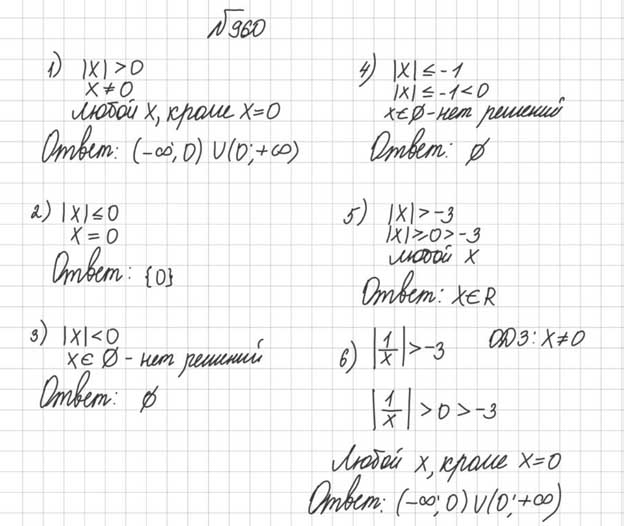 №960
1) |x|>0
x≠0
любой x, кроме x=0
Ответ: (-∞; 0) ∪ (0; +∞)
2) |x|≤0
x=0
Ответ: {0}
3) |x|<0
x∈∅ - нет решений
Ответ: ∅
4) |x|≤-1
|x|≤-1<0
x∈∅-нет решений
Ответ: ∅
5) |x|>-3
|x|≥0>-3
любой x
Ответ: x∈R
6) |1/x|>-3 ОДЗ: x≠0
|1/x|>0>-3
Любой x, кроме x=0
Ответ: (-∞; 0)∪(0; +∞)